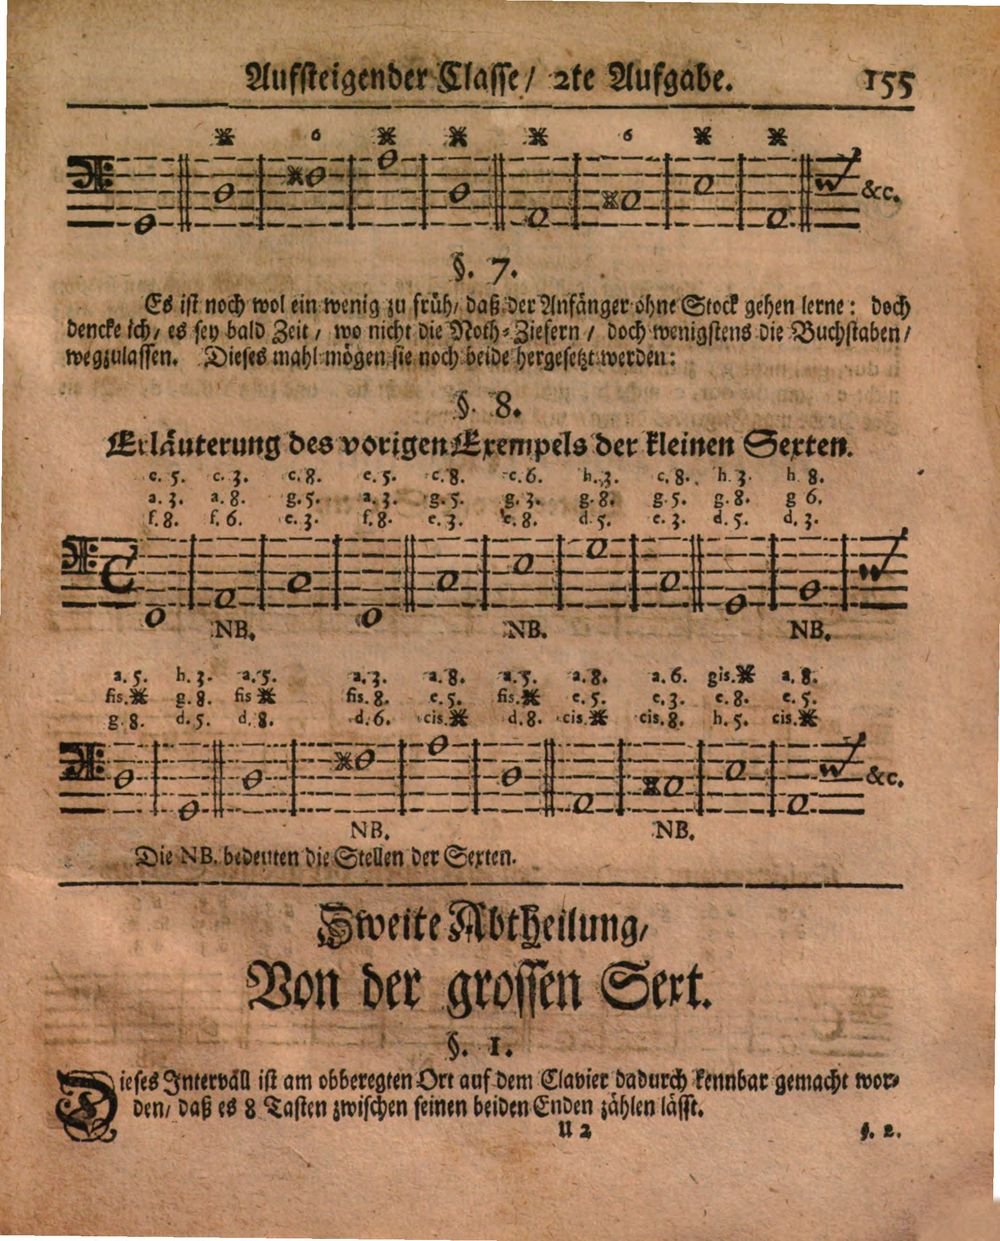 Aufsteigender Classe/ 2te Aufgabe. 155
6 6
&c.
§. 7.
Es ist noch wol ein wenig zu früh/ daß der Anfänger ohne Stock gehen lerne: doch
dencke ich/ es sey bald Zeit/ wo nicht die Noth-Ziefern/ doch wenigstens die Buchstaben/
wegzulassen. Dieses mahl mögen sie noch beide hergesetzt werden:
§. 8.
Erläuterung des vorigen Exempels der kleinen Sexten.
c. 5. c. 3. c. 8. c. 5. c. 8. c. 6. h. 3. c. 8. h. 3. h. 8.
a. 3. a. 8. g. 5. a. 3. g. 5. g. 3. g. 8. g. 5. g. 8. g 6.
f. 8. f. 6. e. 3. f. 8. e. 3. e. 8. d. 5. e. 3. d. 5. d. 3.
C
NB. NB. NB.
a. 5. h. 3. a. 5. a. 3. a. 8. a. 5. a. 8. a. 6. gis.※ a. 8.
fis.※ g. 8. fis ※ fis. 8. e. 5. fis.※ e. 5. e. 3. e. 8. e. 5.
g. 8. d. 5. d. 8. d. 6. cis.※ d. 8. cis.※ cis. 8. h. 5. cis.※
&c.
NB. NB.
Die NB. bedeuten die Stellen der Sexten.
Zweite Abtheilung/
Von der grossen Sext.
§. 1.
Dieses Intervall ist am obberegten Ort auf dem Clavier dadurch kennbar gemacht wor-
den/ daß es 8 Tasten zwischen seinen beiden Enden zählen lässt.
U 2 §. 2.